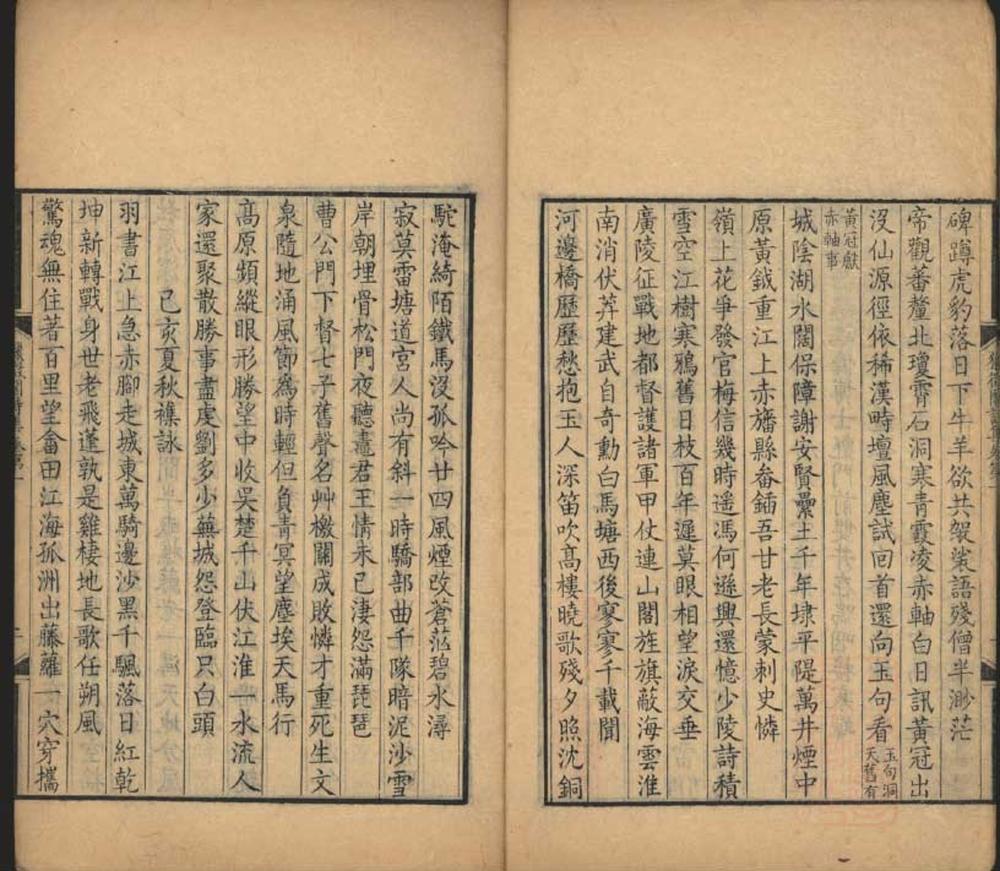 碑蹲虎豹落日下牛羊欲共袈裟語殘僧半渺茫
帝觀蕃釐北瓊霄石洞寒青霞凌赤軸白日訊黃冠出
沒仙源徑依稀漢時壇風塵試回首還向玉句看玉句洞
天舊有
黃冠獻
赤軸事
城陰湖水闊保障謝安賢纍土千年埭平隄萬井煙中
原黃鉞重江上赤旛縣畚鍤吾甘老長蒙刺史憐
嶺上花爭發官梅信幾時遥馮何遜興還憶少陵詩積
雪空江樹寒鴉舊日枝百年遲莫眼相望淚交垂
廣陵征戰地都督護諸軍甲仗連山閣旌旗蔽海雲淮
南消伏莽建武自奇勳白馬塘西後寥寥千載聞
河邊橋歷歷愁抱玉人深笛吹高樓曉歌殘夕照沈銅
駝淹綺陌鐵馬沒孤吟廿四風煙改蒼茫碧水潯
寂莫雷塘道宮人尚有斜一時驕部曲千隊暗泥沙雪
岸朝埋骨松門夜聽鼃君王情未已淒怨滿琵琶
曹公門下督七子舊聲名艸檄關成敗憐才重死生文
泉隨地涌風節爲時輕但負青冥望塵埃天馬行
高原頻縱眼形勝望中收吳楚千山伏江淮一水流人
家還聚散勝事盡虔劉多少蕪城怨登臨只白頭
己亥夏秋襍詠
羽書江上急赤腳走城東萬騎邊沙黑千颿落日紅乾
坤新轉戰身世老飛蓬孰是雞棲地長歌任朔風
驚魂無住著百里望畬田江海孤洲出藤蘿一穴穿攜